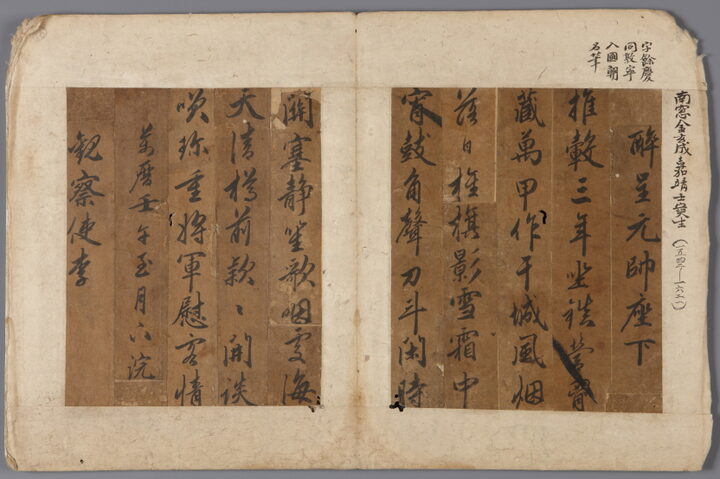 南窓金玄成嘉靖壬寅生(一五四二—一六二一)
字餘慶
同敦寧
入國朝
名筆
醉呈元帥座下
推轂三年坐鉄營胷
藏萬甲作干城風烟
落日旌旗影雪霜中
宵鼓角聲刀斗閑時
關塞静笙歌咽處海
天清樽前欵〻開談
咲珎重將軍慰客情
萬曆壬午至月下浣
觀察使李